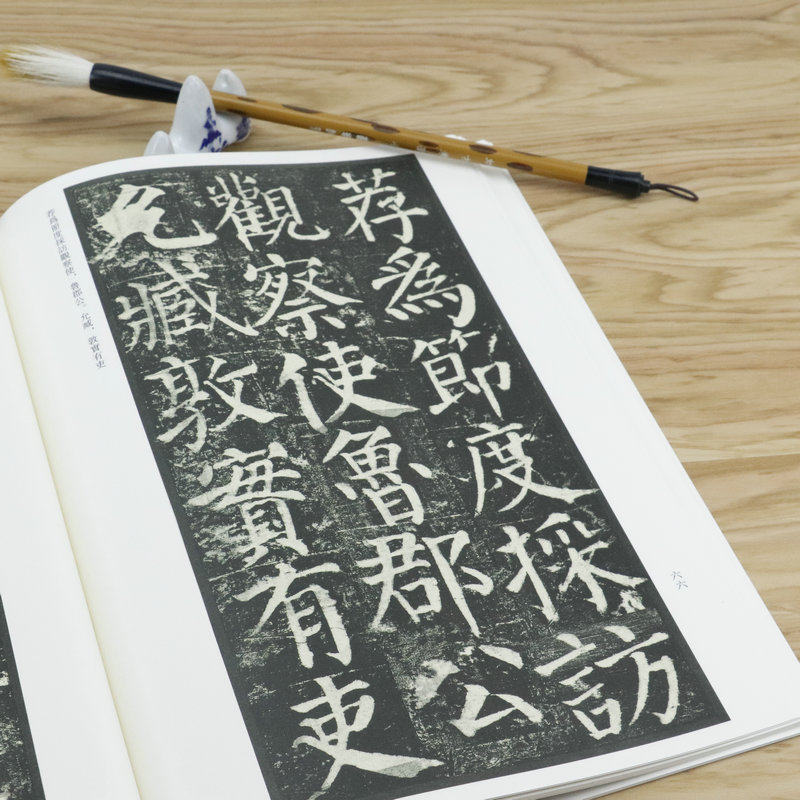 荐為節度採訪
觀察使魯郡公
允臧敦實有吏
荐爲節度採訪觀察使，魯郡公。允臧，敦實有吏
六六